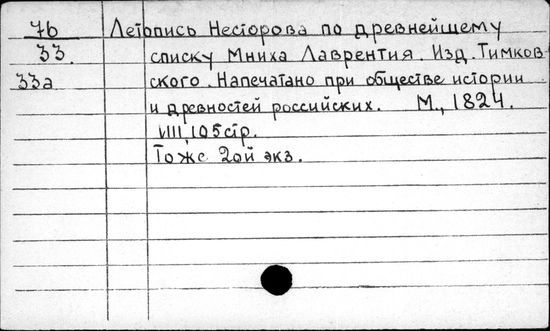 76 Летопись Несторова по древнейшему
33. списку Мниха Лаврентия. Изд. Тимков
33а ского. Напечатано при обществе истории
и древностей российских. М., 1824.
VIII, 105 стр.
Тоже 2ой экз.